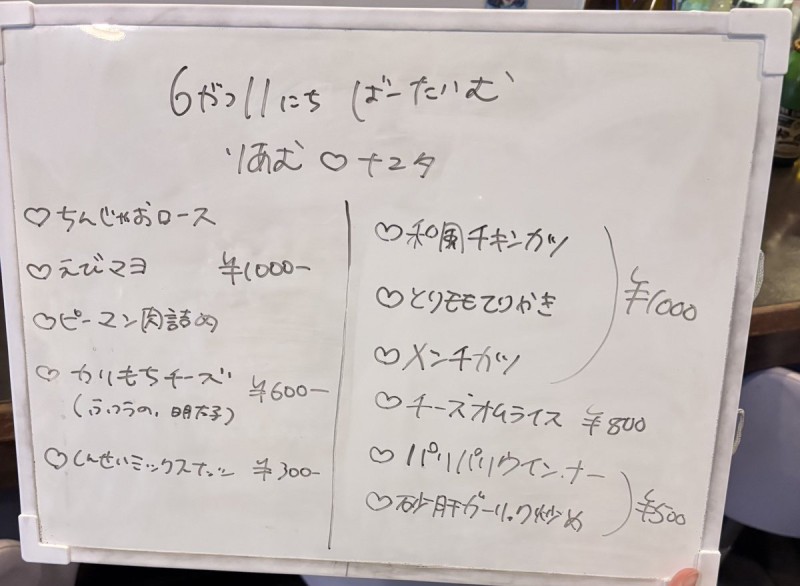 6がつ11にち ばーたいむ
りあむ♡ナユタ
♡ちんじゃおロース
♡えびマヨ ¥1000-
♡ピーマン肉詰め
♡かりもちチーズ ¥600-
(ふつうの、明太子)
♡しんせいミックスナッツ ¥300-
♡和風チキンカツ
♡とりモモてりやき ¥1000
♡メンチカツ
♡チーズオムライス ¥800
♡パリパリウインナー
♡砂肝ガーリック炒め ¥500